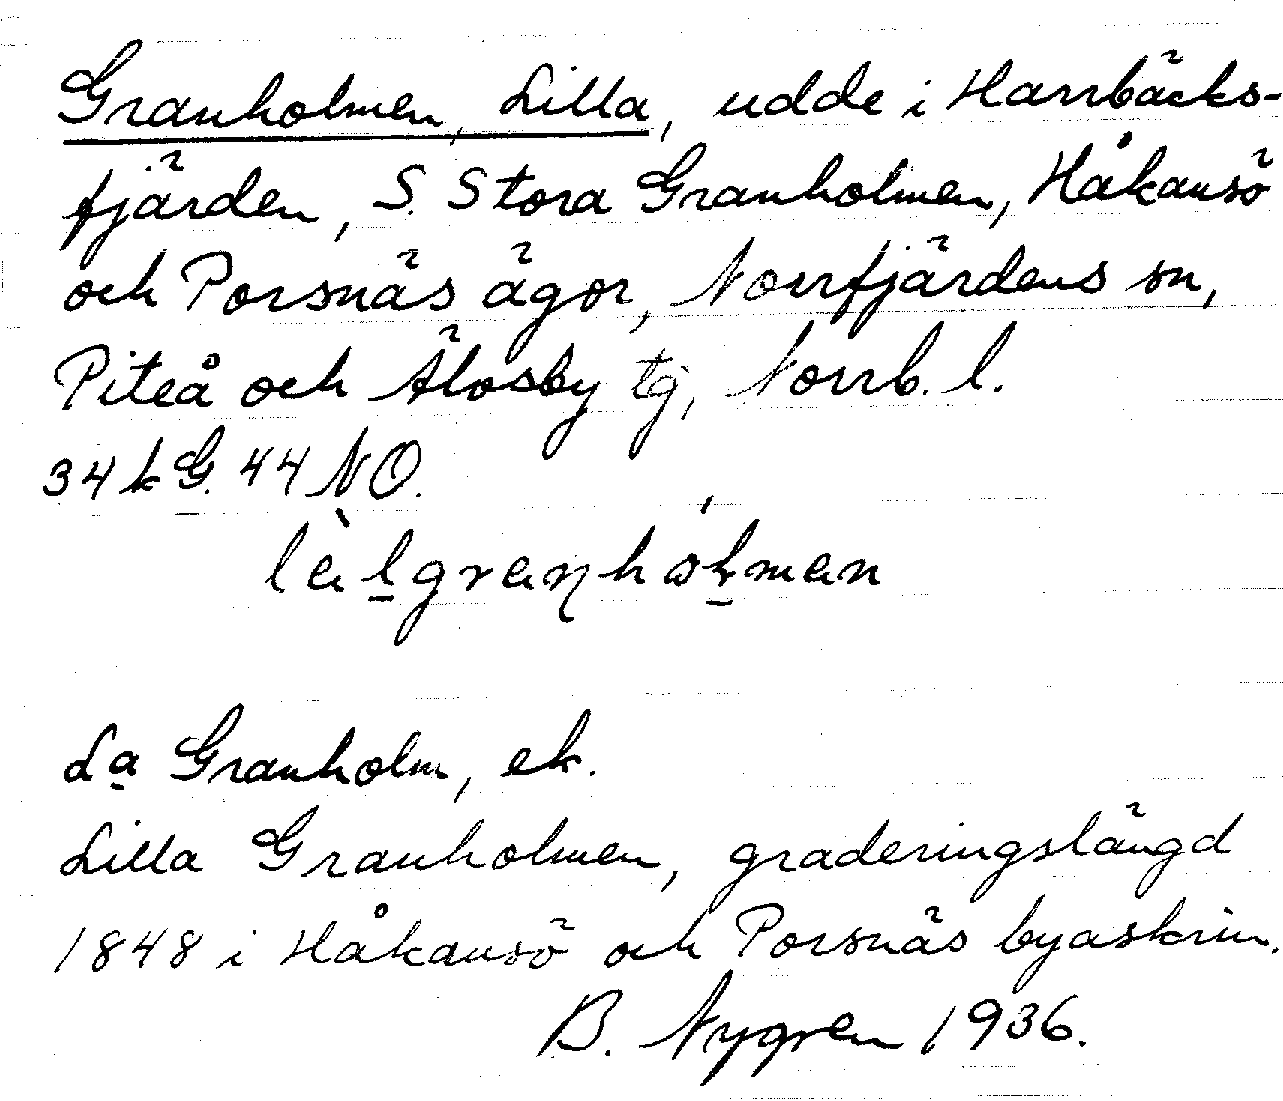 Granholmen, Lilla, udde i Harrbäcks-
fjärden, S. Stora Granholmen, Håkansö
och Porsnäs ägor, Norrfjärdens sn,
Piteå och Älvsby tg, Norrb. l.
34 k G. 44 NO.
La Granholm, ek.
Lilla Granholmen, graderingslängd
1848 i Håkansö och Porsnäs byaskrin.
B. Nygren 1936.